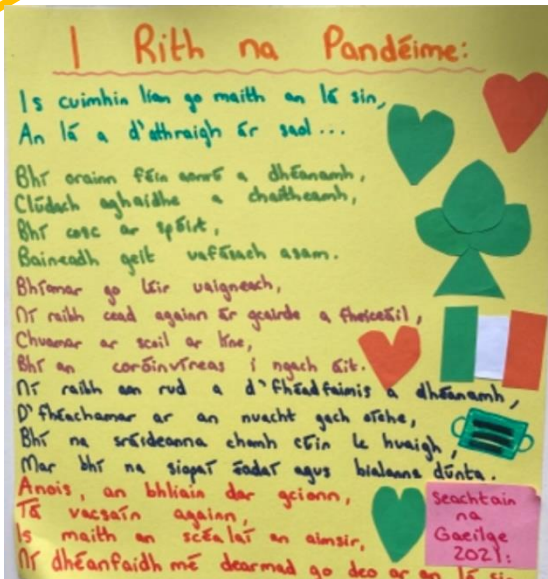 I Rith na Pandéime:
Is cuimhin liom go maith an lá sin,
An lá a d'athraigh ár saol...
Bhí orainn féin aonrú a dhéanamh,
Clúdach aghaidhe a chaitheamh,
Bhí cosc ar spóirt,
Baineadh geit uafásach asam.
Bhíomar go léir uaigneach,
Ní raibh cead againn ár gcairde a fheiceáil,
Chuamar ar scoil ar líne,
Bhí an coróinvíreas i ngach áit.
Ní raibh aon rud a d'fhéadfaimis a dhéanamh,
D'fhéachamar ar an nuacht gach oíche,
Bhí na sráideanna chomh ciúin le huaigh,
Mar bhí na siopaí éadaí agus bialanna dúnta.
Anois, an bhliain dar gcionn,
Tá vacsaín againn,
Is maith an scéalaí an aimsir,
Ní dhéanfaidh mé dearmad go deo ar an lá sin
Seachtain
na
Gaeilge
2021: